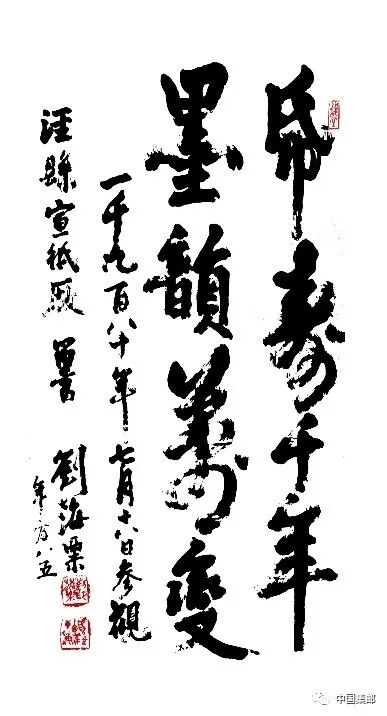 帋壽千年
墨韻萬變
一千九百八十年七月十六日参觀
涇縣宣紙厰
劉海粟
年方八五
中国集邮